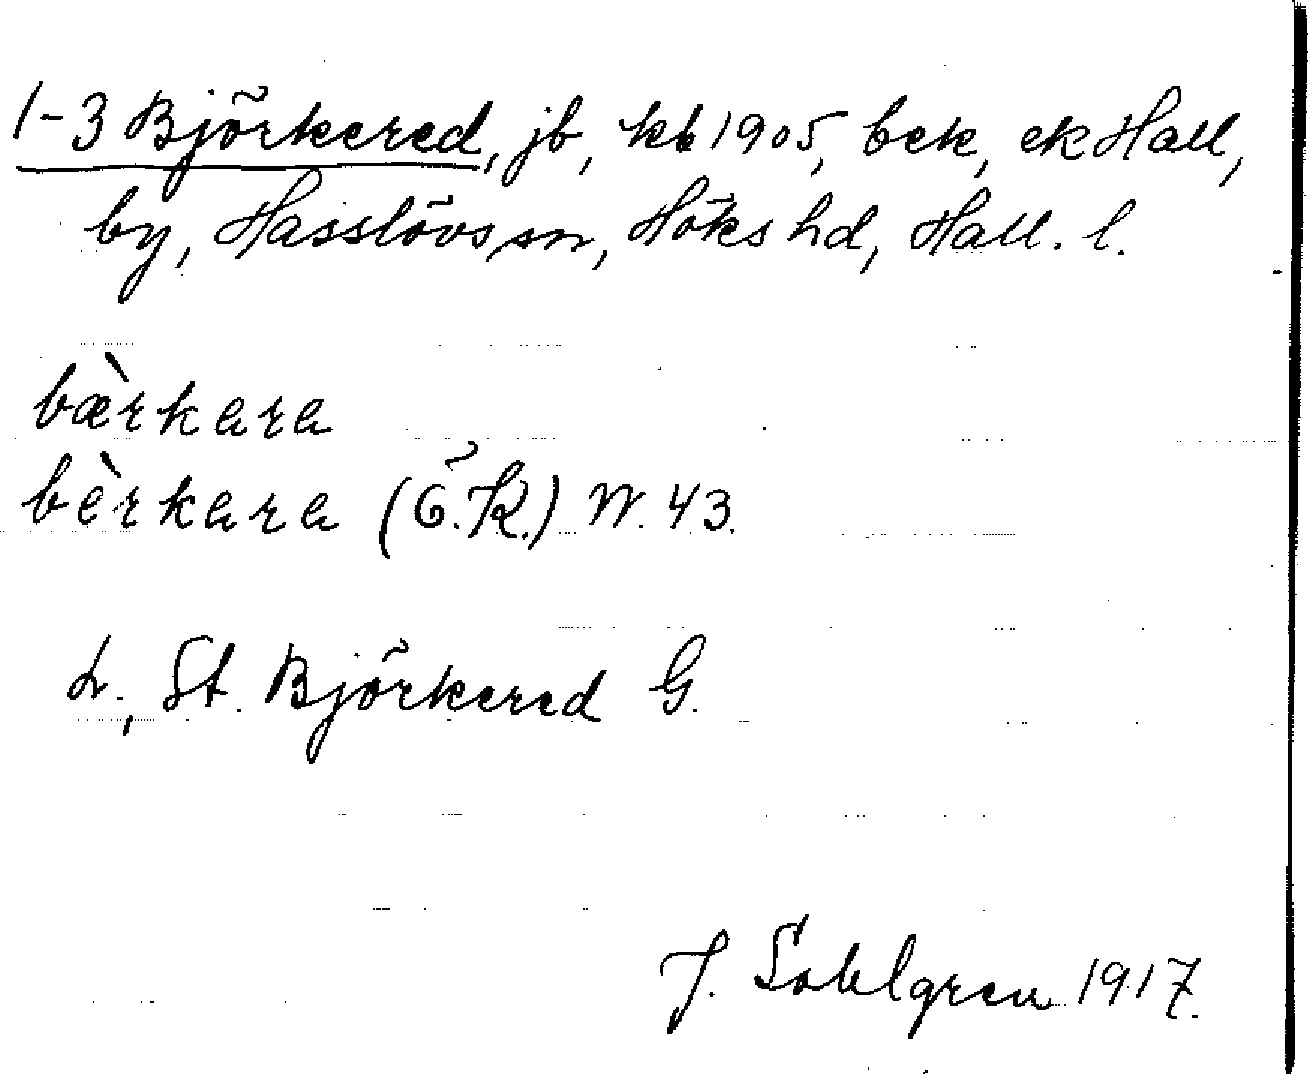 1-3 Björkered, jb, kb 1905, bek, ek Hall,
by, Hasslövs sn, Höks hd, Hall. l.
bæ̀rkara
bèrkara (Ö.K.) N. 43.
L., St. Björkered G.
J. Sahlgren 1917.